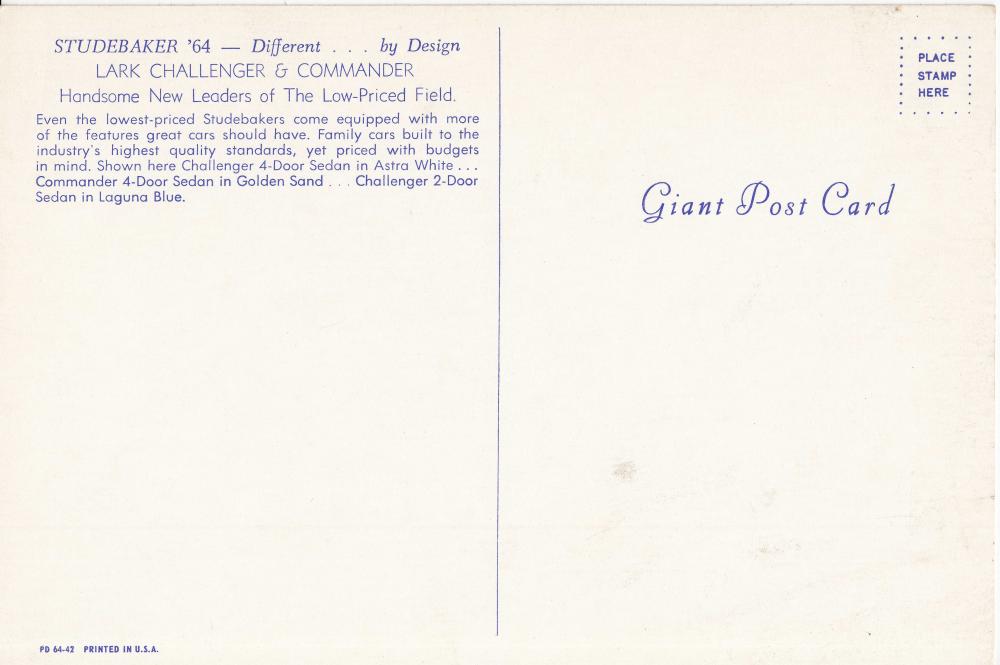 STUDEBAKER '64 — Different . . . by Design
LARK CHALLENGER & COMMANDER
Handsome New Leaders of The Low-Priced Field.
Even the lowest-priced Studebakers come equipped with more
of the features great cars should have. Family cars built to the
industry's highest quality standards, yet priced with budgets
in mind. Shown here Challenger 4-Door Sedan in Astra White . . .
Commander 4-Door Sedan in Golden Sand . . . Challenger 2-Door
Sedan in Laguna Blue.
PD 64-42 PRINTED IN U.S.A.
PLACE
STAMP
HERE
Giant Post Card